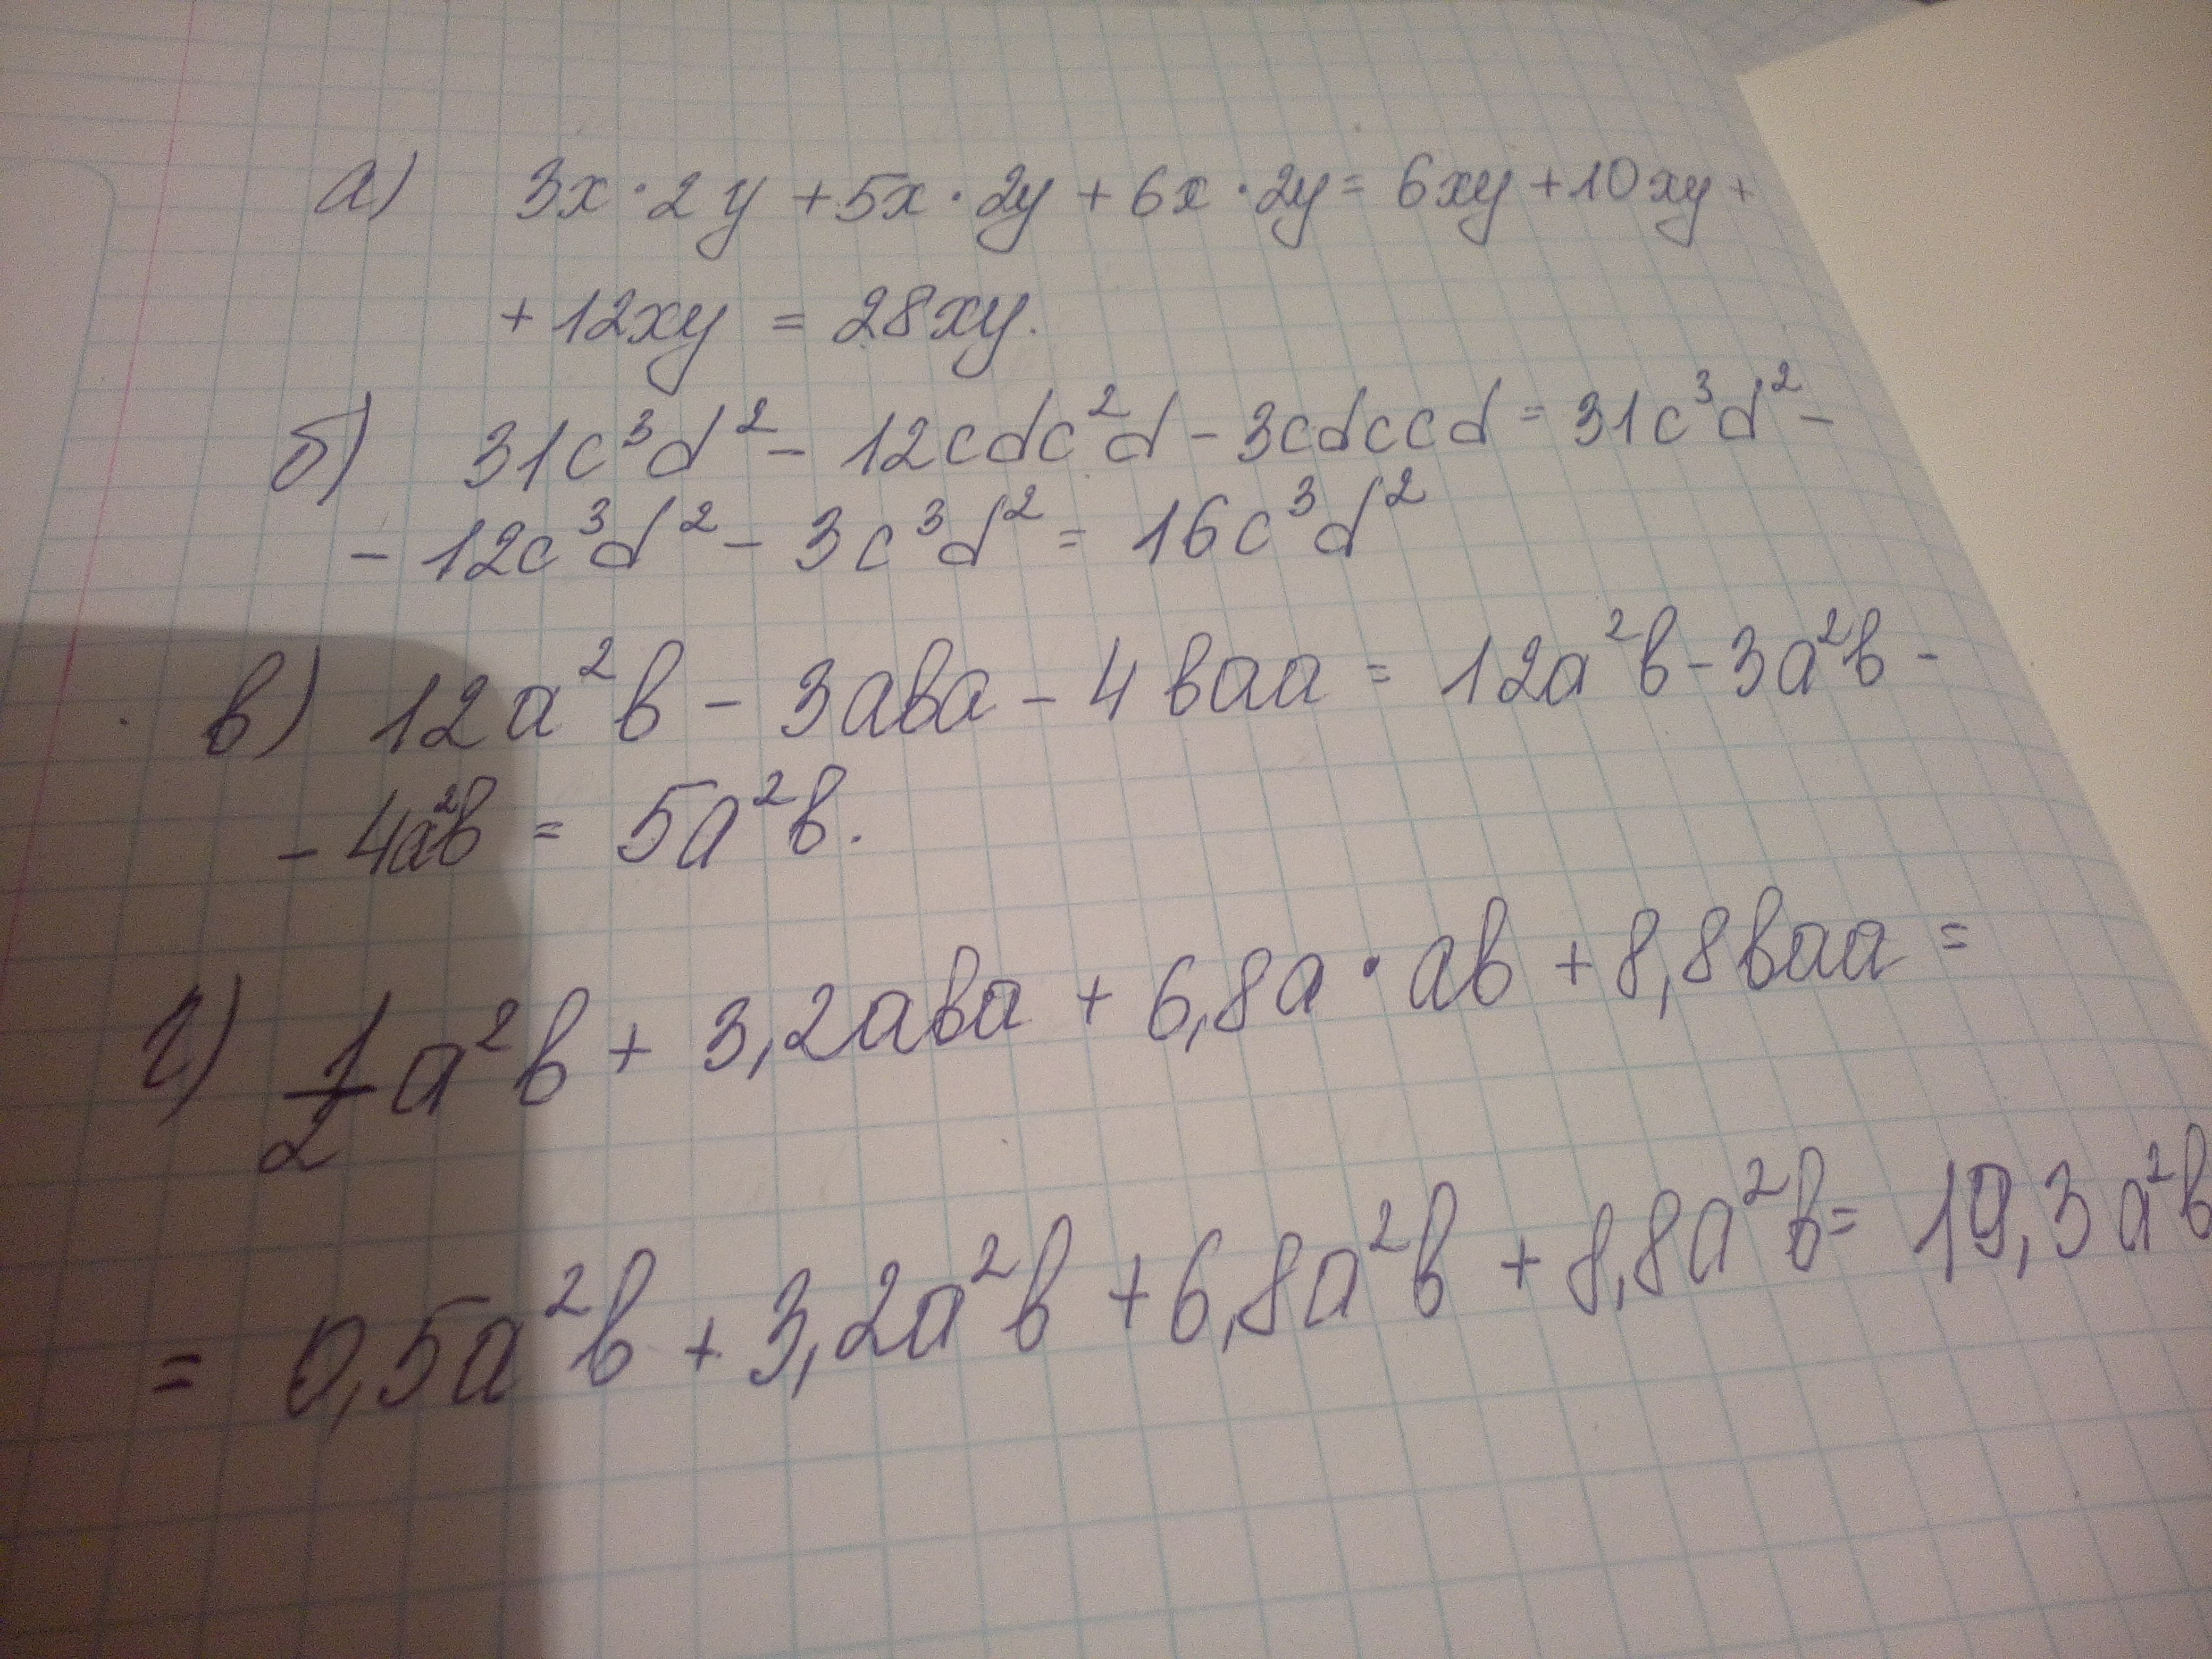 а) 3x · 2y + 5x · 2y + 6x · 2y = 6xy + 10xy +
+ 12xy = 28xy.
б) 31c³d² - 12cdc²d - 3cdccd = 31c³d² -
- 12c³d² - 3c³d² = 16c³d²
в) 12a²b - 3aba - 4baa = 12a²b - 3a²b -
- 4a²b = 5a²b.
г) 1/2 a²b + 3,2aba + 6,8a · ab + 8,8baa =
= 0,5a²b + 3,2a²b + 6,8a²b + 8,8a²b = 19,3a²b